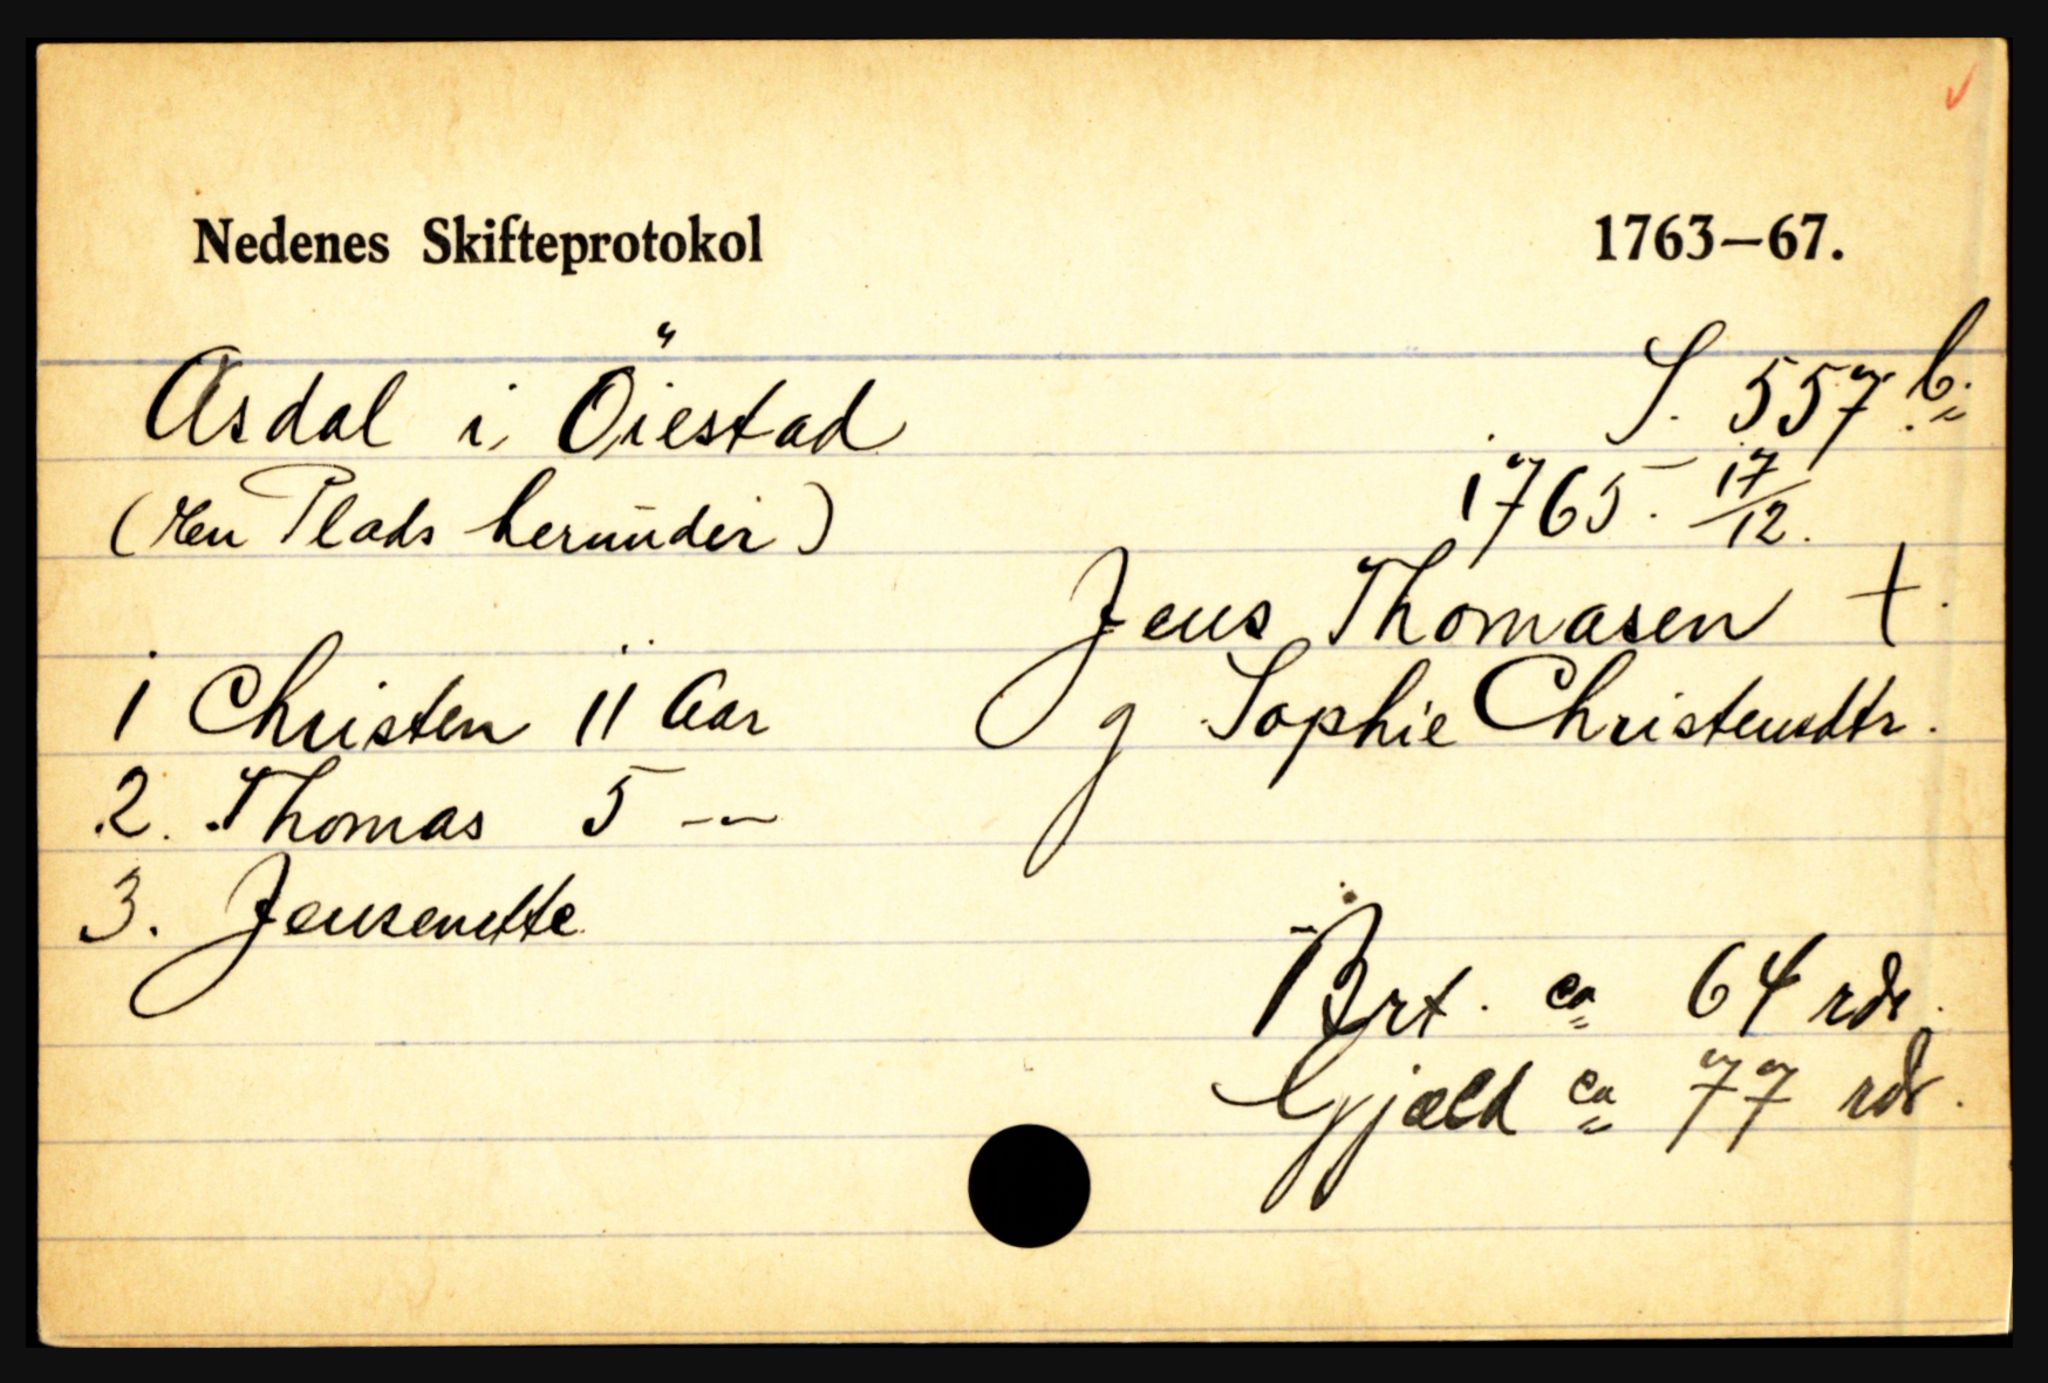 Nedenes Skifteprotokol 1763—67.
Asdal i Öiestad S. 557 b.
(en Plads herunder) 1765. 17/12.
Jens Thomasen +.
1 Christen 11 Aar g Sophie Christensdtr.
2. Thomas 5 —
3. Jensenette
Brt. ca 64 rdr.
Gjæld ca 77 rdr.